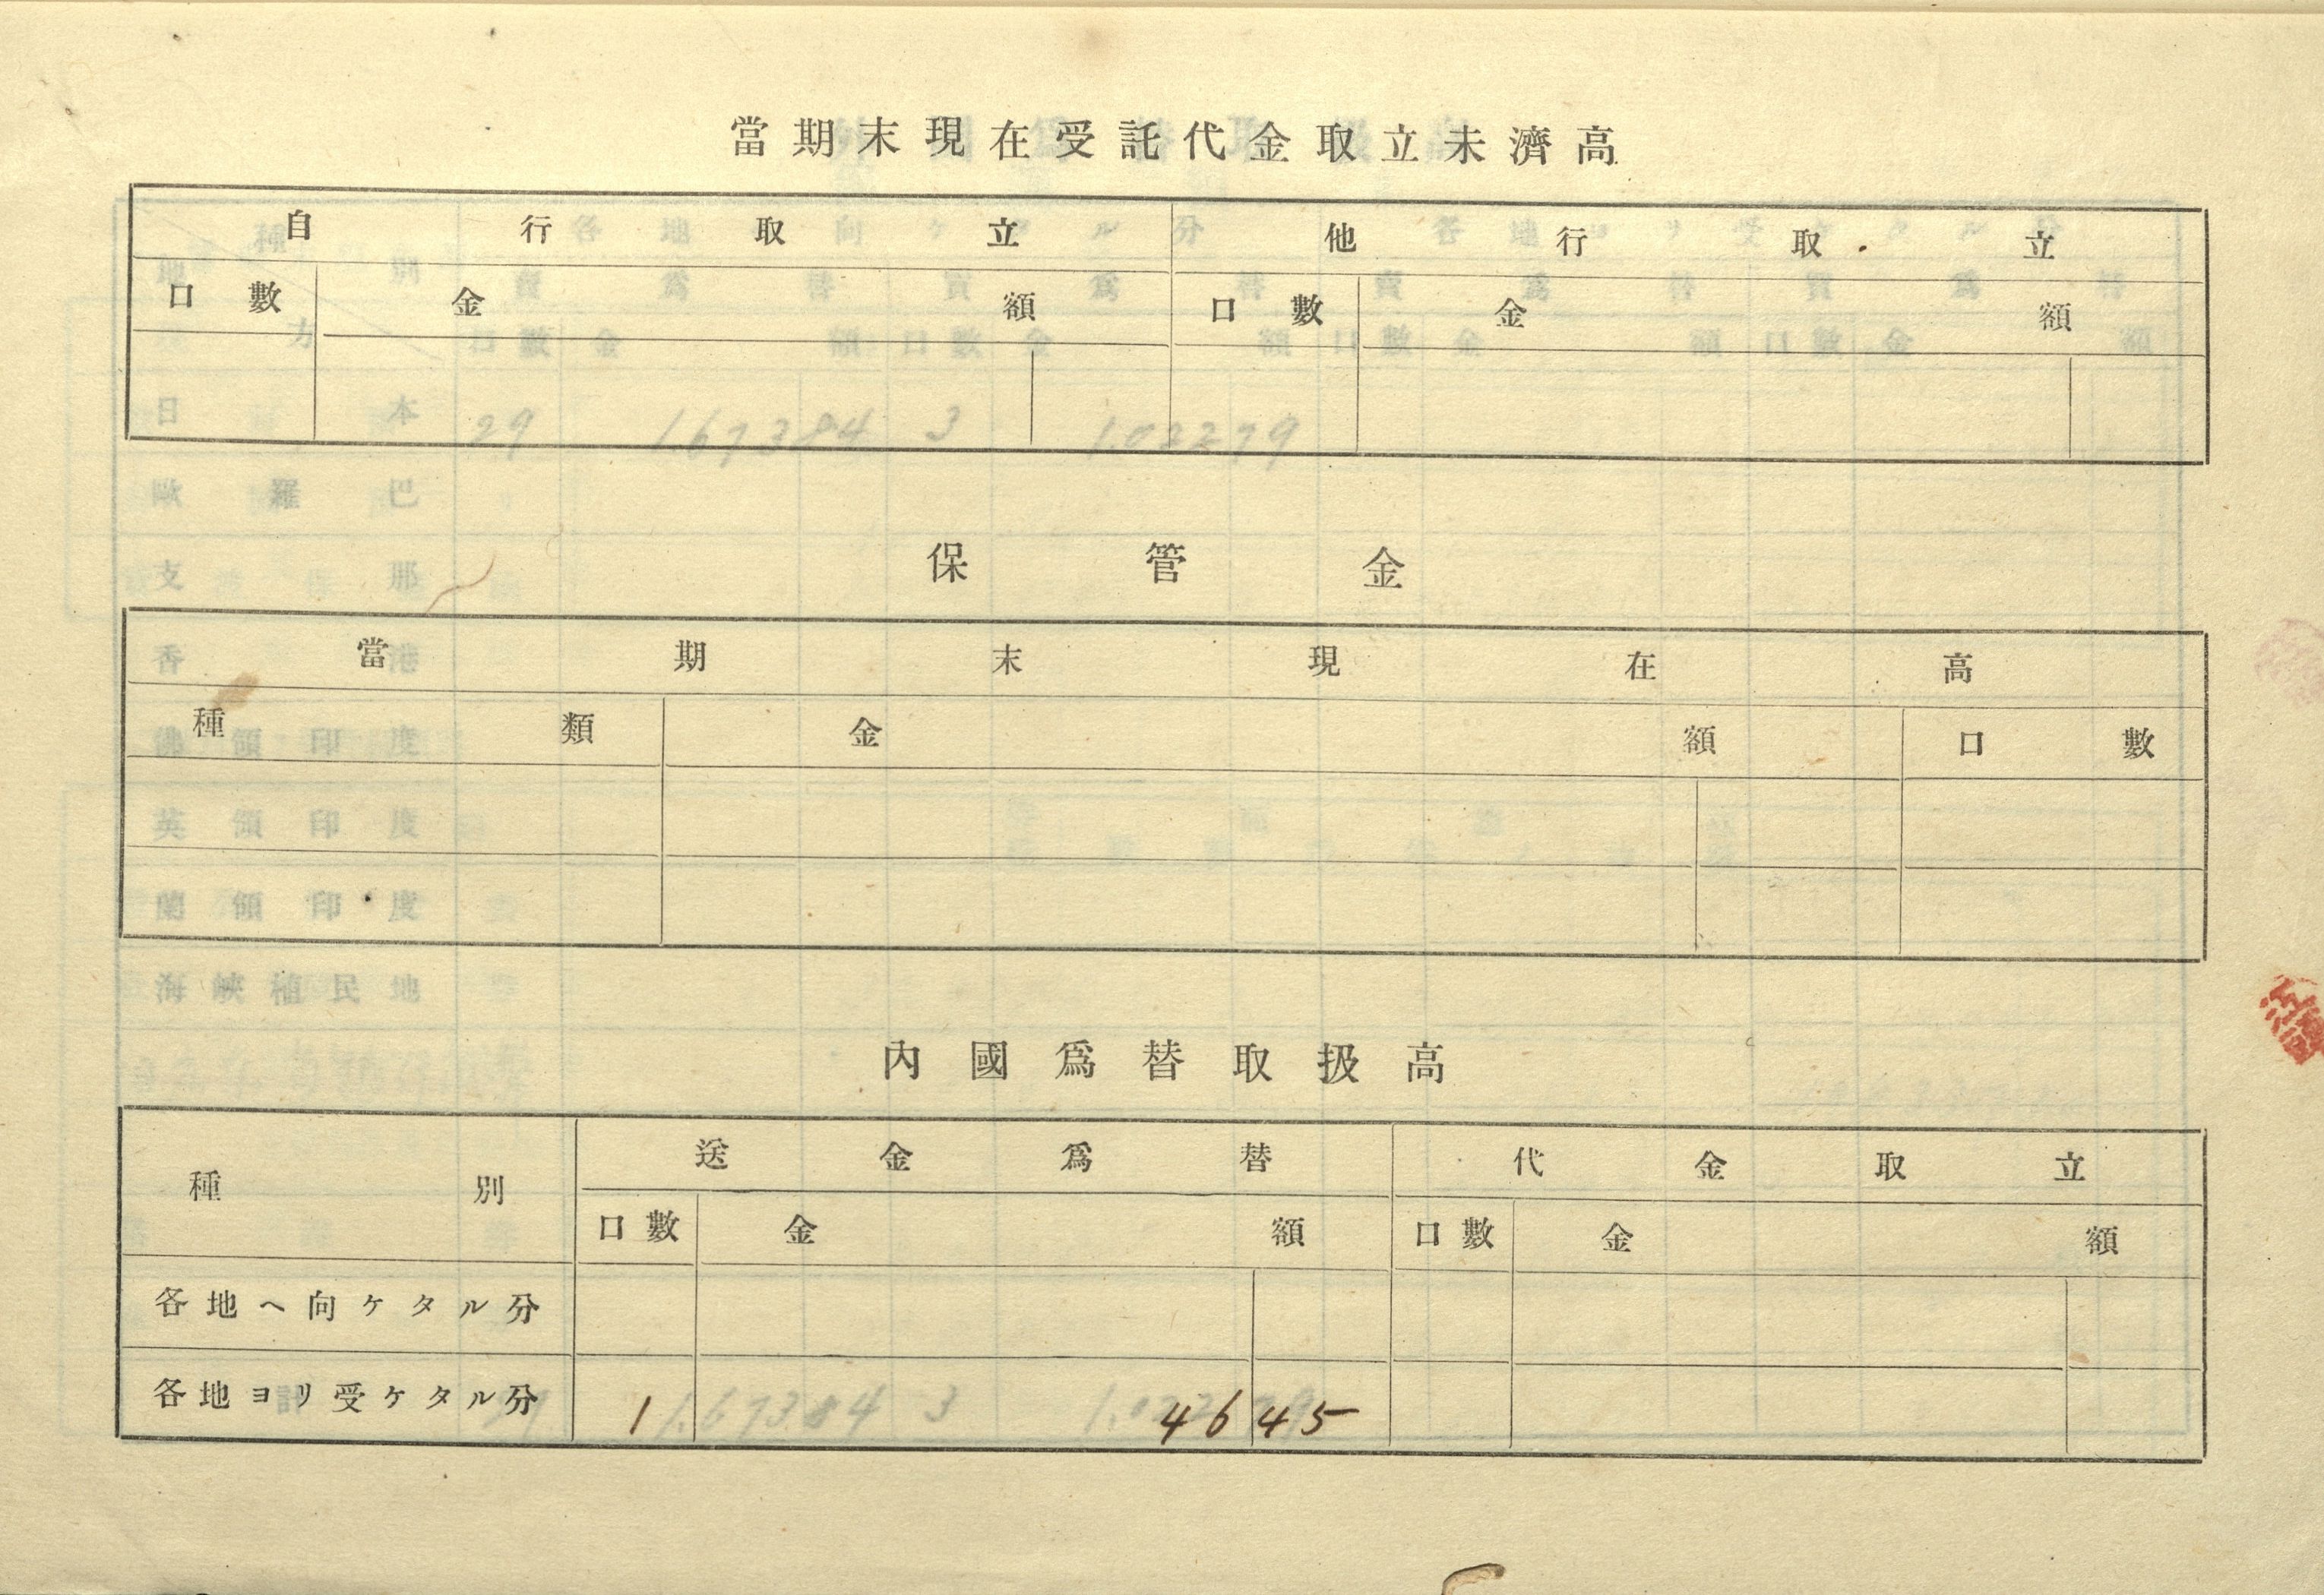 當期末現在受託代金取立未濟高
自行取立 他行取立
口數 金額 口數 金額
保管金
當期末現在高
種類 金額 口數
內國爲替取扱高
種別 送金爲替 代金取立
口數 金額 口數 金額
各地ヘ向ケタル分
各地ヨリ受ケタル分 1 46 45